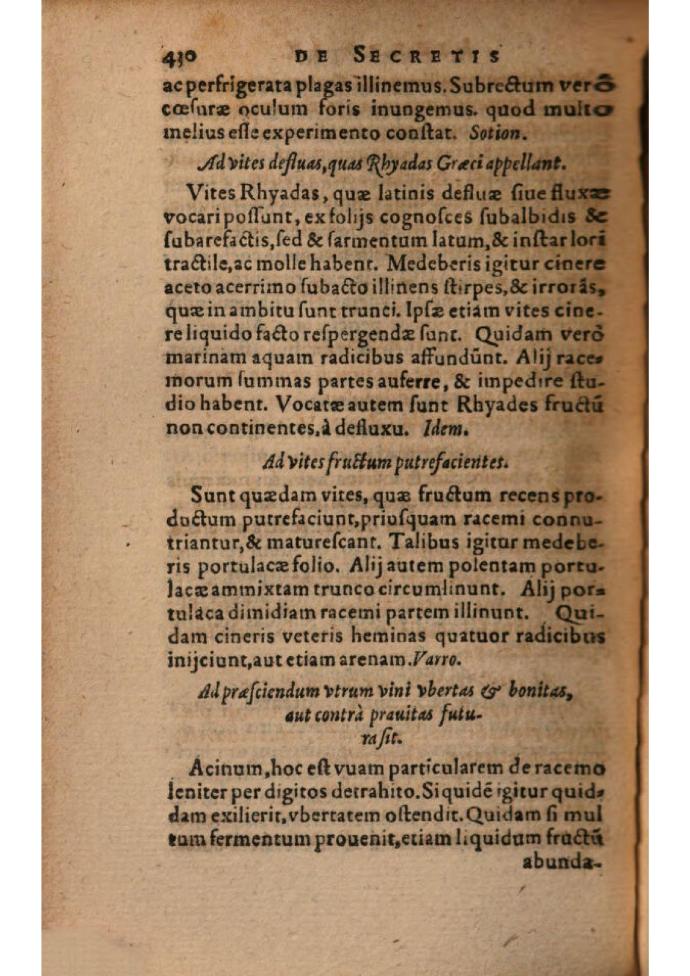 430 DE SECRETIS
ac perfrigerata plagas illinemus. Subrectum verò
cœſuræ oculum foris inungemus. quod multo
melius eſſe experimento conſtat. Sotion.
Ad vites defluas, quas Rhyadas Græci appellant.
Vites Rhyadas, quæ latinis defluæ ſiue fluxæ
vocari poſſunt, ex folijs cognoſces ſubalbidis &
ſubarefactis, ſed & ſarmentum latum, & inſtar lori
tractile, ac molle habent. Medeberis igitur cinere
aceto acerrimo ſubacto illinens ſtirpes, & irrorãs,
quæ in ambitu ſunt trunci. Ipſæ etiam vites cine-
re liquido facto reſpergendæ ſunt. Quidam verò
marinam aquam radicibus affundũt. Alij race-
morum ſummas partes auferre, & impedire ſtu-
dio habent. Vocatæ autem ſunt Rhyades fructũ
non continentes, à defluxu. Idem.
Ad vites fructum putrefacientes.
Sunt quædam vites, quæ fructum recens pro-
ductum putrefaciunt, priuſquam racemi connu-
triantur, & matureſcant. Talibus igitur medebe-
ris portulacæ folio. Alij autem polentam portu-
lacæ ammixtam trunco circumlinunt. Alij por-
tulaca dimidiam racemi partem illinunt. Qui-
dam cineris veteris heminas quatuor radicibus
inijciunt, aut etiam arenam. Varro.
Ad præſciendum vtrum vini vbertas & bonitas,
aut contrà prauitas futu-
ra ſit.
Acinum, hoc eſt vuam particularem de racemo
leniter per digitos detrahito. Si quidẽ igitur quid-
dam exilierit, vbertatem oſtendit. Quidam ſi mul
tum fermentum prouenit, etiam liquidum fructũ
abunda-